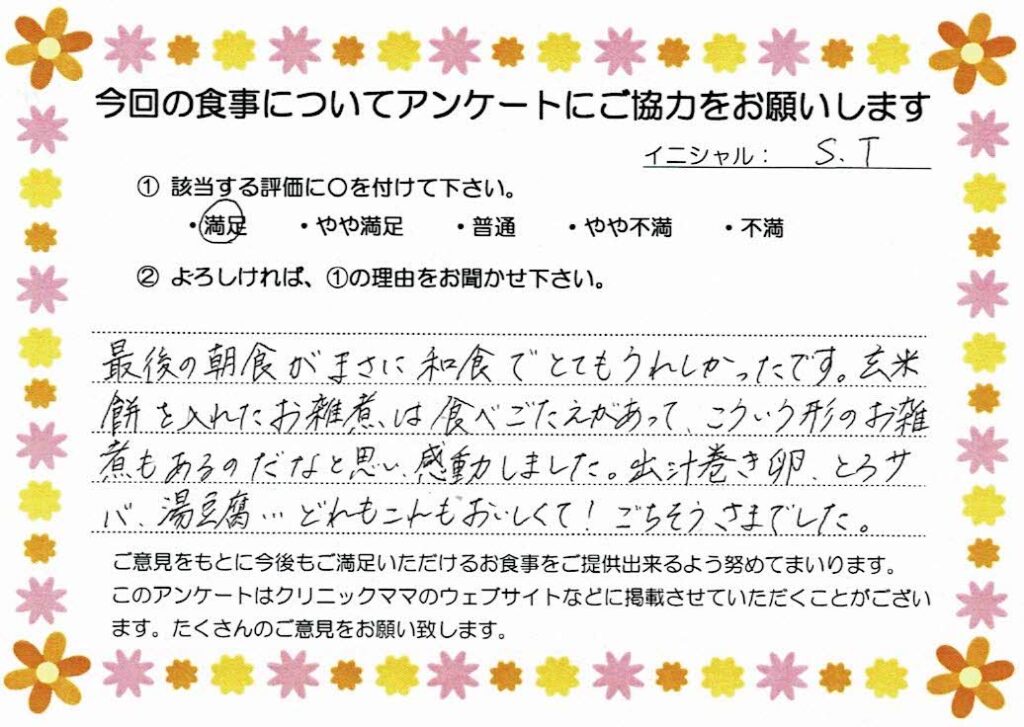 今回の食事についてアンケートにご協力をお願いします
イニシャル： S.T
① 該当する評価に〇を付けて下さい。
・満足 ・やや満足 ・普通 ・やや不満 ・不満
② よろしければ、①の理由をお聞かせ下さい。
最後の朝食がまさに和食でとてもうれしかったです。玄米
餅を入れたお雑煮は食べごたえがあって、こういう形のお雑
煮もあるのだなと思い、感動しました。出汁巻き卵、とろサ
バ、湯豆腐…どれもこれもおいしくて！ごちそうさまでした。
ご意見をもとに今後もご満足いただけるお食事をご提供出来るよう努めてまいります。
このアンケートはクリニックママのウェブサイトなどに掲載させていただくことがござい
ます。たくさんのご意見をお願い致します。